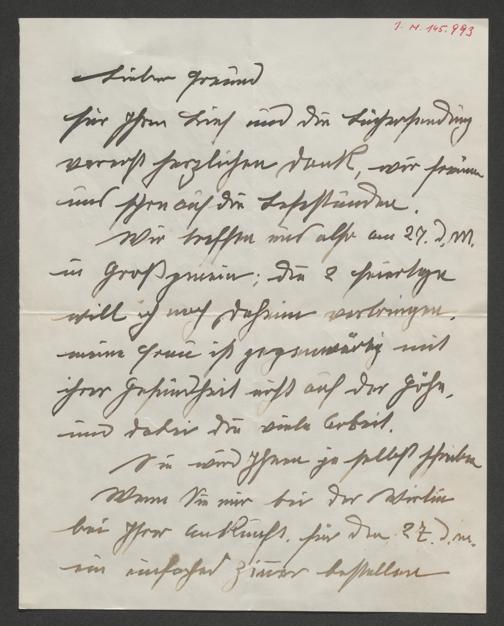 I. N. 145.993
Lieber Freund
für Ihren Brief und die Büchersendung
vorerst herzlichen Dank, wir freuen
uns schon auf die Lesestunden.
Wir treffen uns also am 27. d. M.
in Großgmain; die 2 Feiertage
will ich noch daheim verbringen.
meine Frau ist gegenwärtig mit
ihrer Gesundheit nicht auf der Höhe,
und dabei die viele Arbeit.
Sie wird Ihnen ja selbst schreiben
Wenn Sie mir bei der Wirtin
bei Ihrer Ankunft. für den 27. d. m.
ein einfaches Zimmer bestellen